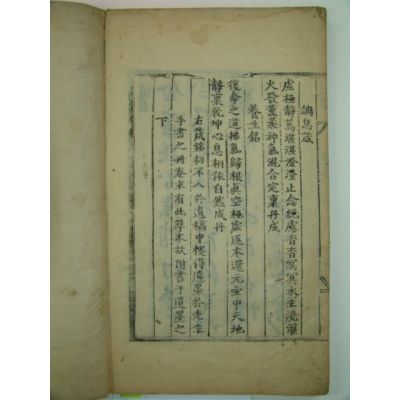 調息箴
虛極靜篤湛湛澄澄止念絕慮杳杳冥冥水生澆灌
火發薰蒸神氣混合定裏丹成
養生銘
復命之道拂氣歸根眞空極虛返本還元壺中天地
靜裏乾坤心息相依自然成丹
右箴銘初不入於遺稿中樓得遺墨於先生
手書之冊卷末有此草本故附書于遺墨之
下